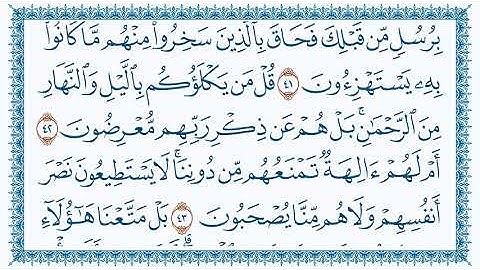 بِرُسُلٍ مِّن قَبْلِكَ فَحَاقَ بِالَّذِينَ سَخِرُوا مِنْهُم مَّا كَانُوا
بِهِ يَسْتَهْزِءُونَ ٤١ قُلْ مَن يَكْلَؤُكُم بِاللَّيْلِ وَالنَّهَارِ
مِنَ الرَّحْمَٰنِ ۗ بَلْ هُمْ عَن ذِكْرِ رَبِّهِم مُّعْرِضُونَ ٤٢
أَمْ لَهُمْ ءَالِهَةٌ تَمْنَعُهُم مِّن دُونِنَا ۚ لَا يَسْتَطِيعُونَ نَصْرَ
أَنفُسِهِمْ وَلَا هُم مِّنَّا يُصْحَبُونَ ٤٣ بَلْ مَتَّعْنَا هَٰؤُلَاءِ